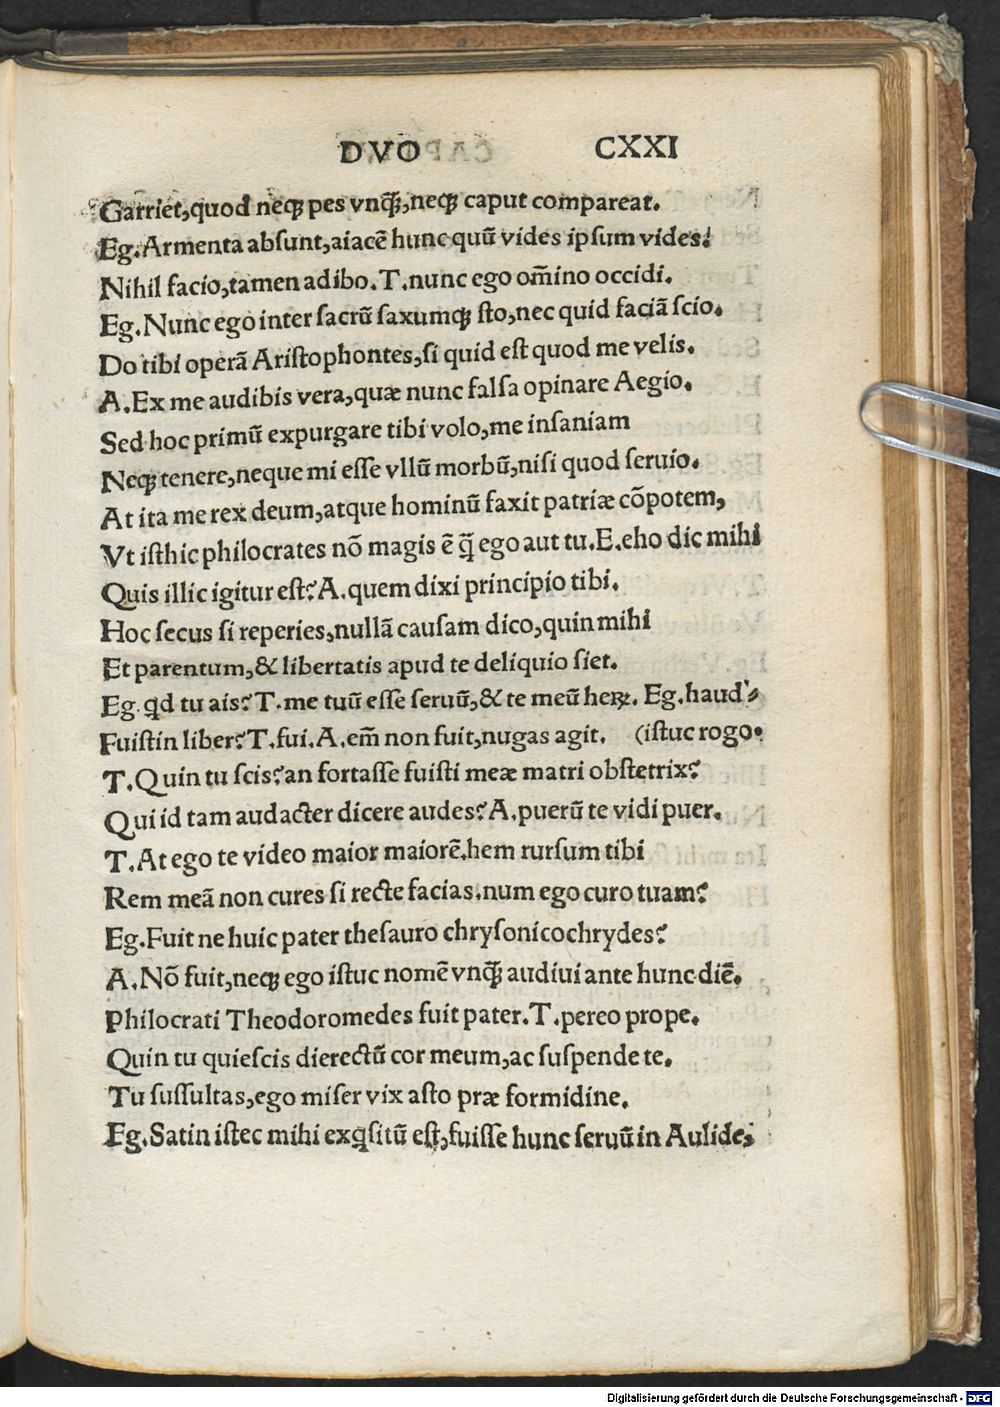 DVO CXXI
Garriet,quod neqꝫ pes vnq̃ꝫ,neqꝫ caput compareat.
Eg.Armenta absunt,aiacẽ hunc quũ vides ipsum vides?
Nihil facio,tamen adibo.T.nunc ego om̃ino occidi.
Eg.Nunc ego inter sacrũ saxumqꝫ sto,nec quid faciã scio.
Do tibi operã Aristophontes,si quid est quod me velis.
A.Ex me audibis vera,quæ nunc falsa opinare Aegio.
Sed hoc primũ expurgare tibi volo,me insaniam
Neqꝫ tenere,neque mi esse vllũ morbũ,nisi quod seruio.
At ita me rex deum,atque hominũ faxit patriæ cõpotem,
Vt isthic philocrates nõ magis ẽ q̃ ego aut tu.E.eho dic mihi
Quis illic igitur est?A.quem dixi principio tibi.
Hoc secus si reperies,nullã causam dico,quin mihi
Et parentum,& libertatis apud te deliquio siet.
Eg.qd tu ais?T.me tuũ esse seruũ,& te meũ heꝝ. Eg.haud'⸗
Fuistin liber?T.fui.A.em̃ non fuit,nugas agit. (istuc rogo.
T.Quin tu scis?an fortasse fuisti meæ matri obstetrix?
Qui id tam audacter dicere audes?A.puerũ te vidi puer.
T.At ego te video maior maiorẽ.hem rursum tibi
Rem meã non cures si recte facias.num ego curo tuam?
Eg.Fuit ne huic pater thesauro chrysonicochrydes?
A.Nõ fuit,neqꝫ ego istuc nomẽ vnq̃ꝫ audiui ante hunc diẽ.
Philocrati Theodoromedes fuit pater.T.pereo prope.
Quin tu quiescis dierectũ cor meum,ac suspende te.
Tu sussultas,ego miser vix asto præ formidine.
Eg.Satin istec mihi exqsitũ est,fuisse hunc seruũ in Aulide,
Digitalisierung gefördert durch die Deutsche Forschungsgemeinschaft - DFG